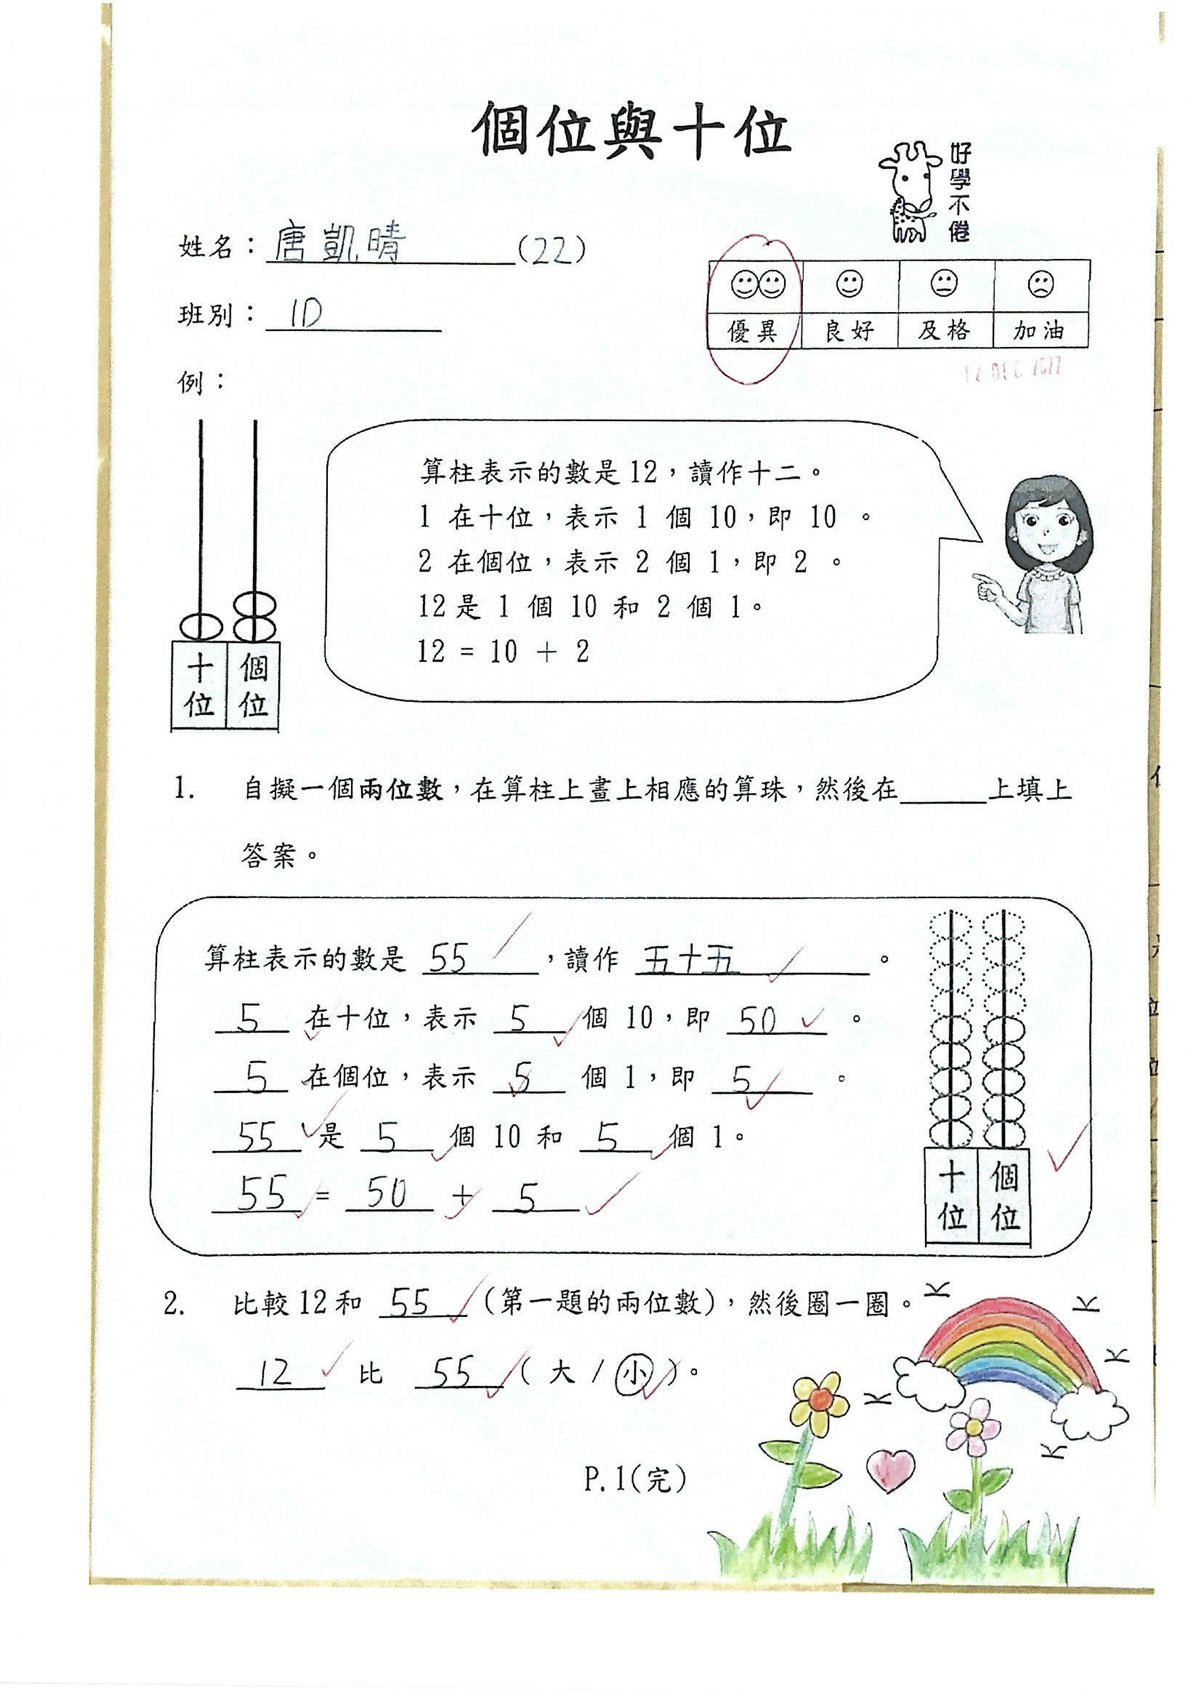 個位與十位
好學不倦
姓名：唐凱晴(22)
班別：1D
優異 良好 及格 加油
12 DEC 2022
例：
算柱表示的數是12，讀作十二。
1 在十位，表示 1 個 10，即 10 。
2 在個位，表示 2 個 1，即 2 。
12是 1 個 10 和 2 個 1。
12 = 10 + 2
十位 個位
1. 自擬一個兩位數，在算柱上畫上相應的算珠，然後在______上填上
答案。
算柱表示的數是 55 ，讀作 五十五 。
5 在十位，表示 5 個 10，即 50 。
5 在個位，表示 5 個 1，即 5 。
55 是 5 個 10 和 5 個 1。
55 = 50 + 5
十位 個位
2. 比較12和 55 (第一題的兩位數)，然後圈一圈。
12 比 55 ( 大 / 小 )。
P.1(完)